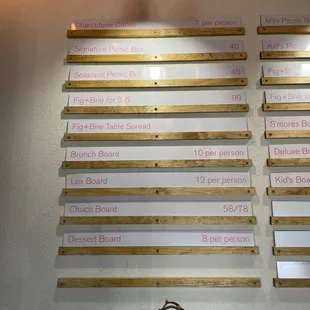 Charcuterie Cones 7 per person
Signature Picnic Box 40
Seasonal Picnic Box 40
Fig+Brie for 6-8 99
Fig+Brie Table Spread
Brunch Board 10 per person
Lox Board 12 per person
Chuco Board 58/78
Dessert Board 8 per person
Mini Picnic
Kid's
Fig+B
Fig+Brie
S'mores
Deluxe
Kid's